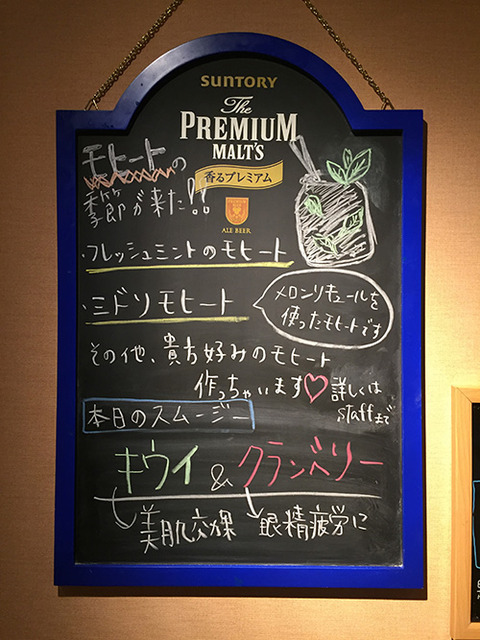 SUNTORY
The
PREMIUM
MALT'S
香るプレミアム
ALE BEER
モヒートの
季節が来た!!
・フレッシュミントのモヒート
・ミドリモヒート
メロンリキュールを
使ったモヒートです
その他、貴方好みのモヒート
作っちゃいます♡
詳しくは
staffまで
本日のスムージー
キウイ & クランベリー
美肌効果
眼精疲労に